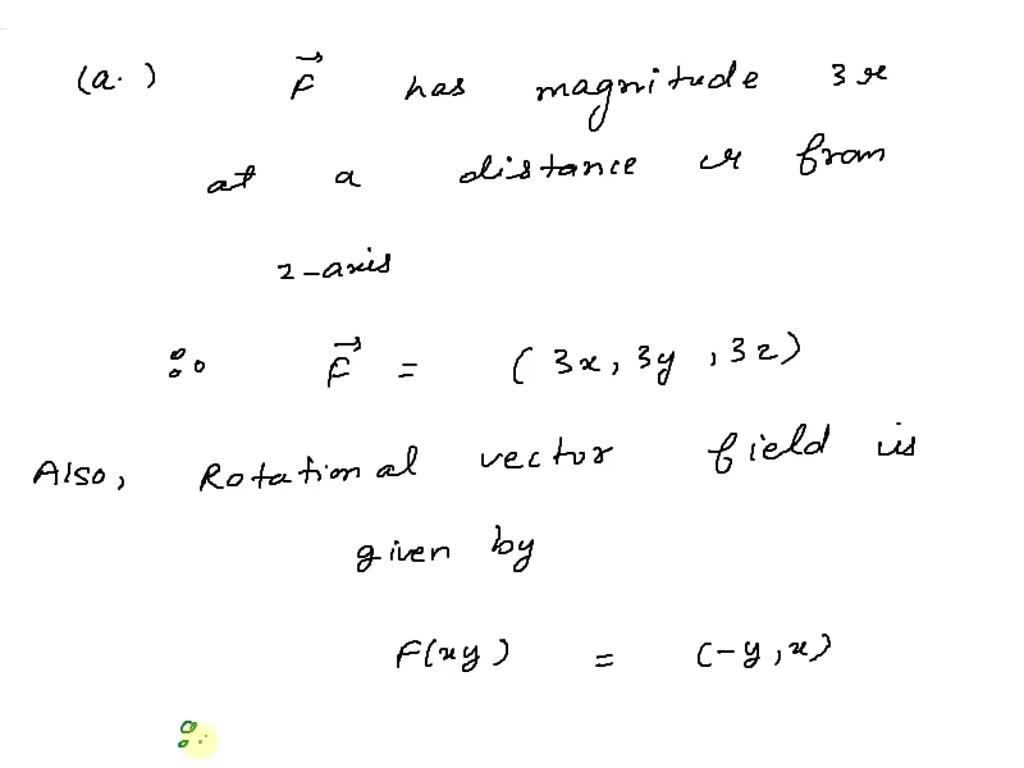 (a.) F⃗ has magnitude 3r
at a distance r from
z-axis
∴ F⃗ = (3x, 3y, 3z)
Also, Rotational vector field is
given by
F(xy) = (-y, x)
∴